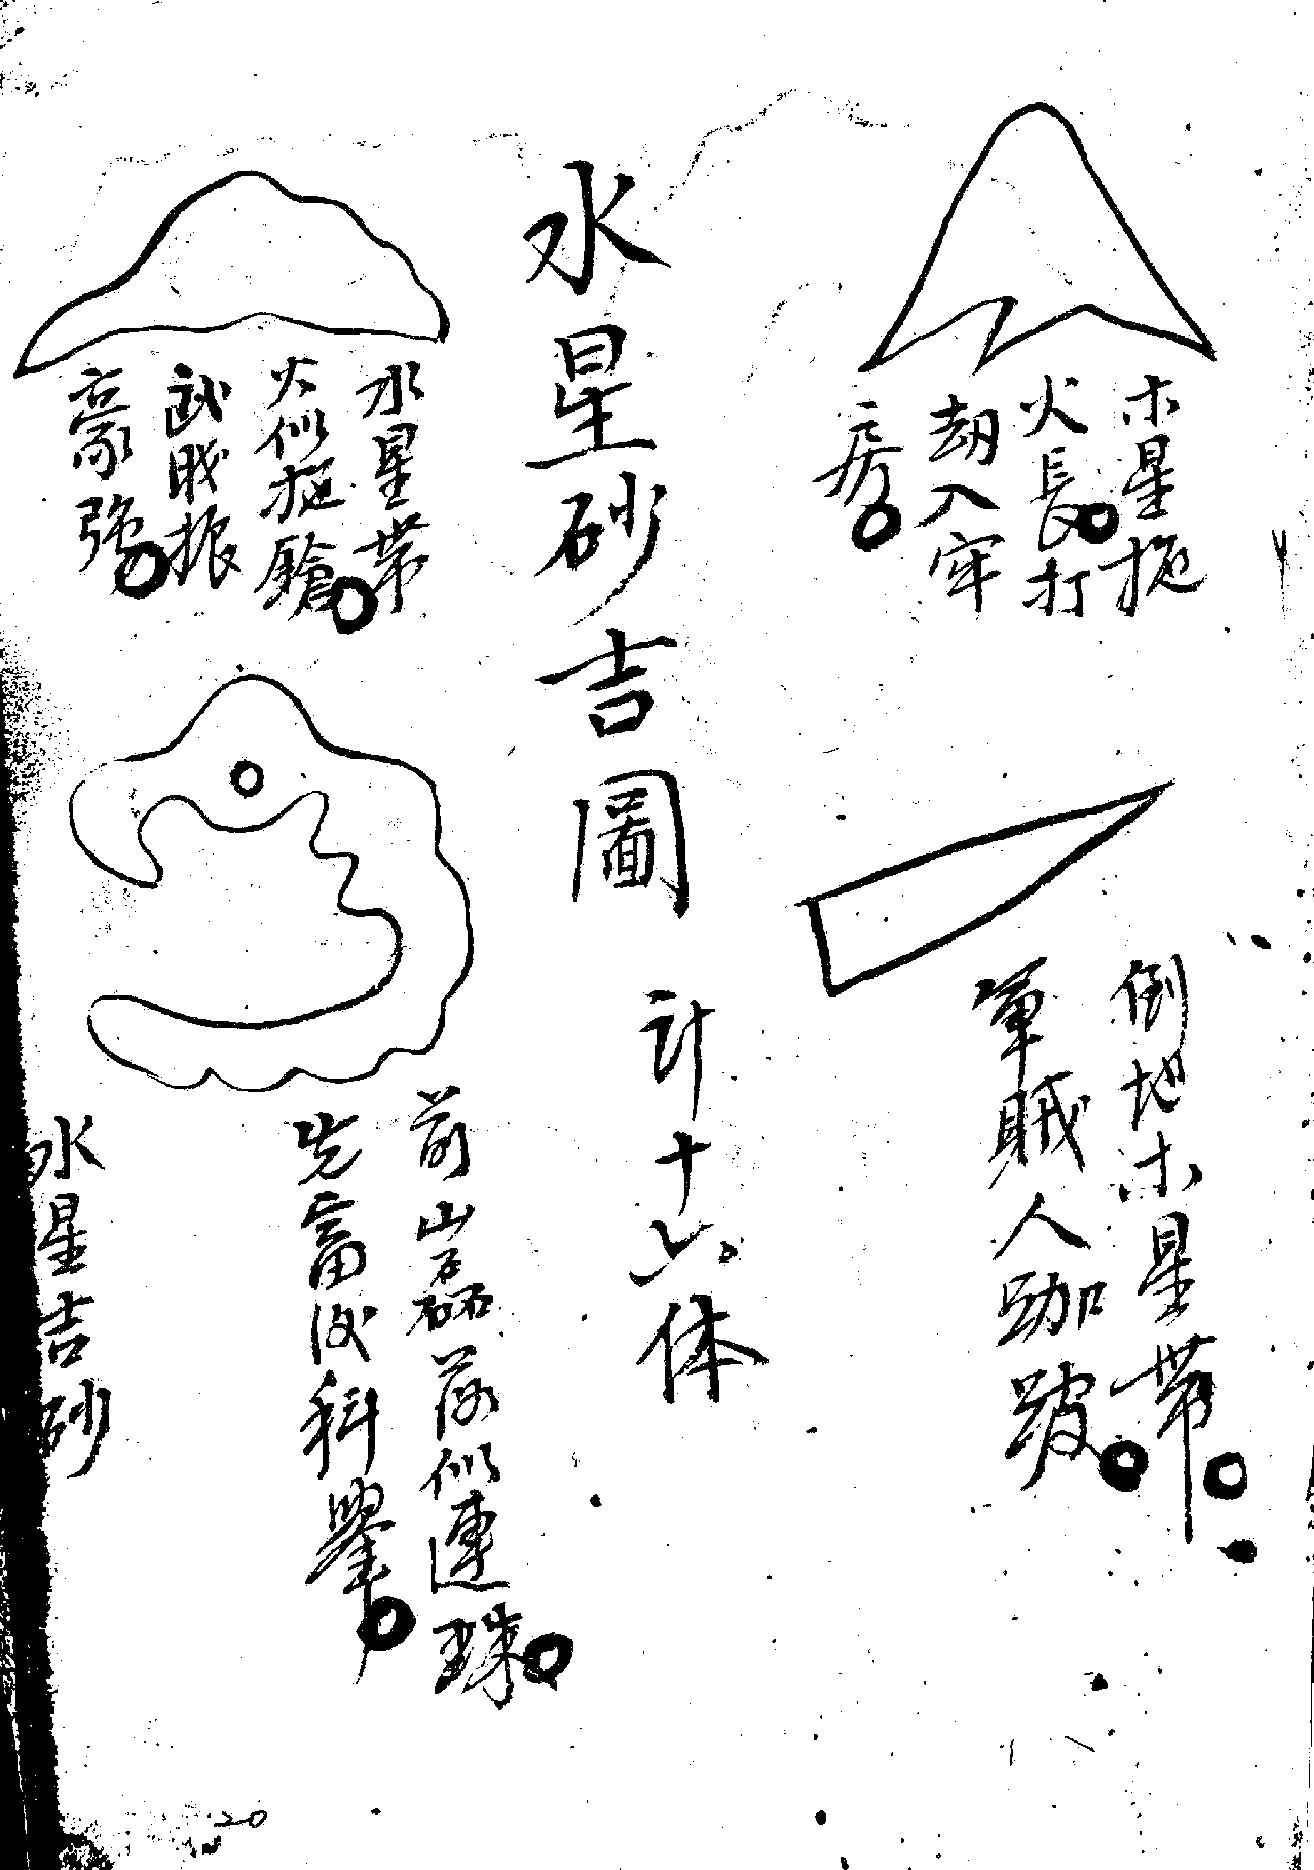 木星拖
火長打
劫入牢
房
倒地木星帶
軍賊人跏跛
水星砂吉圖 計十六体
水星帶
火似拖鎗
武振
豪強
前山磊落似連珠
先富後科舉
水星吉砂
20